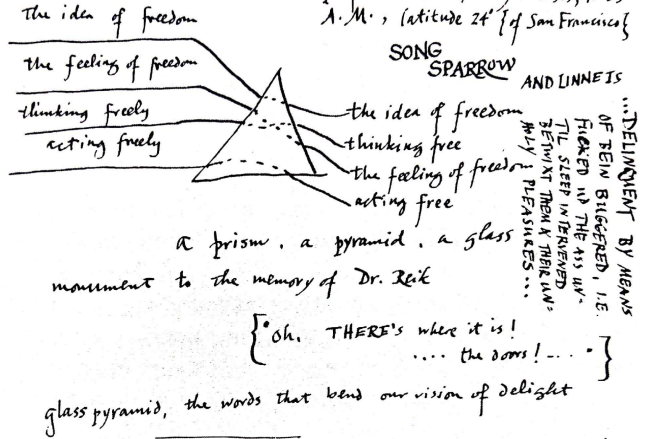 the idea of freedom
the feeling of freedom
thinking freely
acting freely
A.M., latitude 24° {of San Francisco}
SONG
SPARROW
AND LINNETS
the idea of freedom
thinking free
the feeling of freedom
acting free
...DELINQUENT BY MEANS
OF BEIN BUGGERED, I.E.
FUCKED IN THE ASS UN-
TIL SLEEP INTERVENED
BETWIXT THEM & THEIR UN=
HOLY PLEASURES...
a prism. a pyramid. a glass
monument to the memory of Dr. Reik
{"Oh, THERE's where it is!
.... the doors!_...."}
glass pyramid, the words that bend our vision of delight